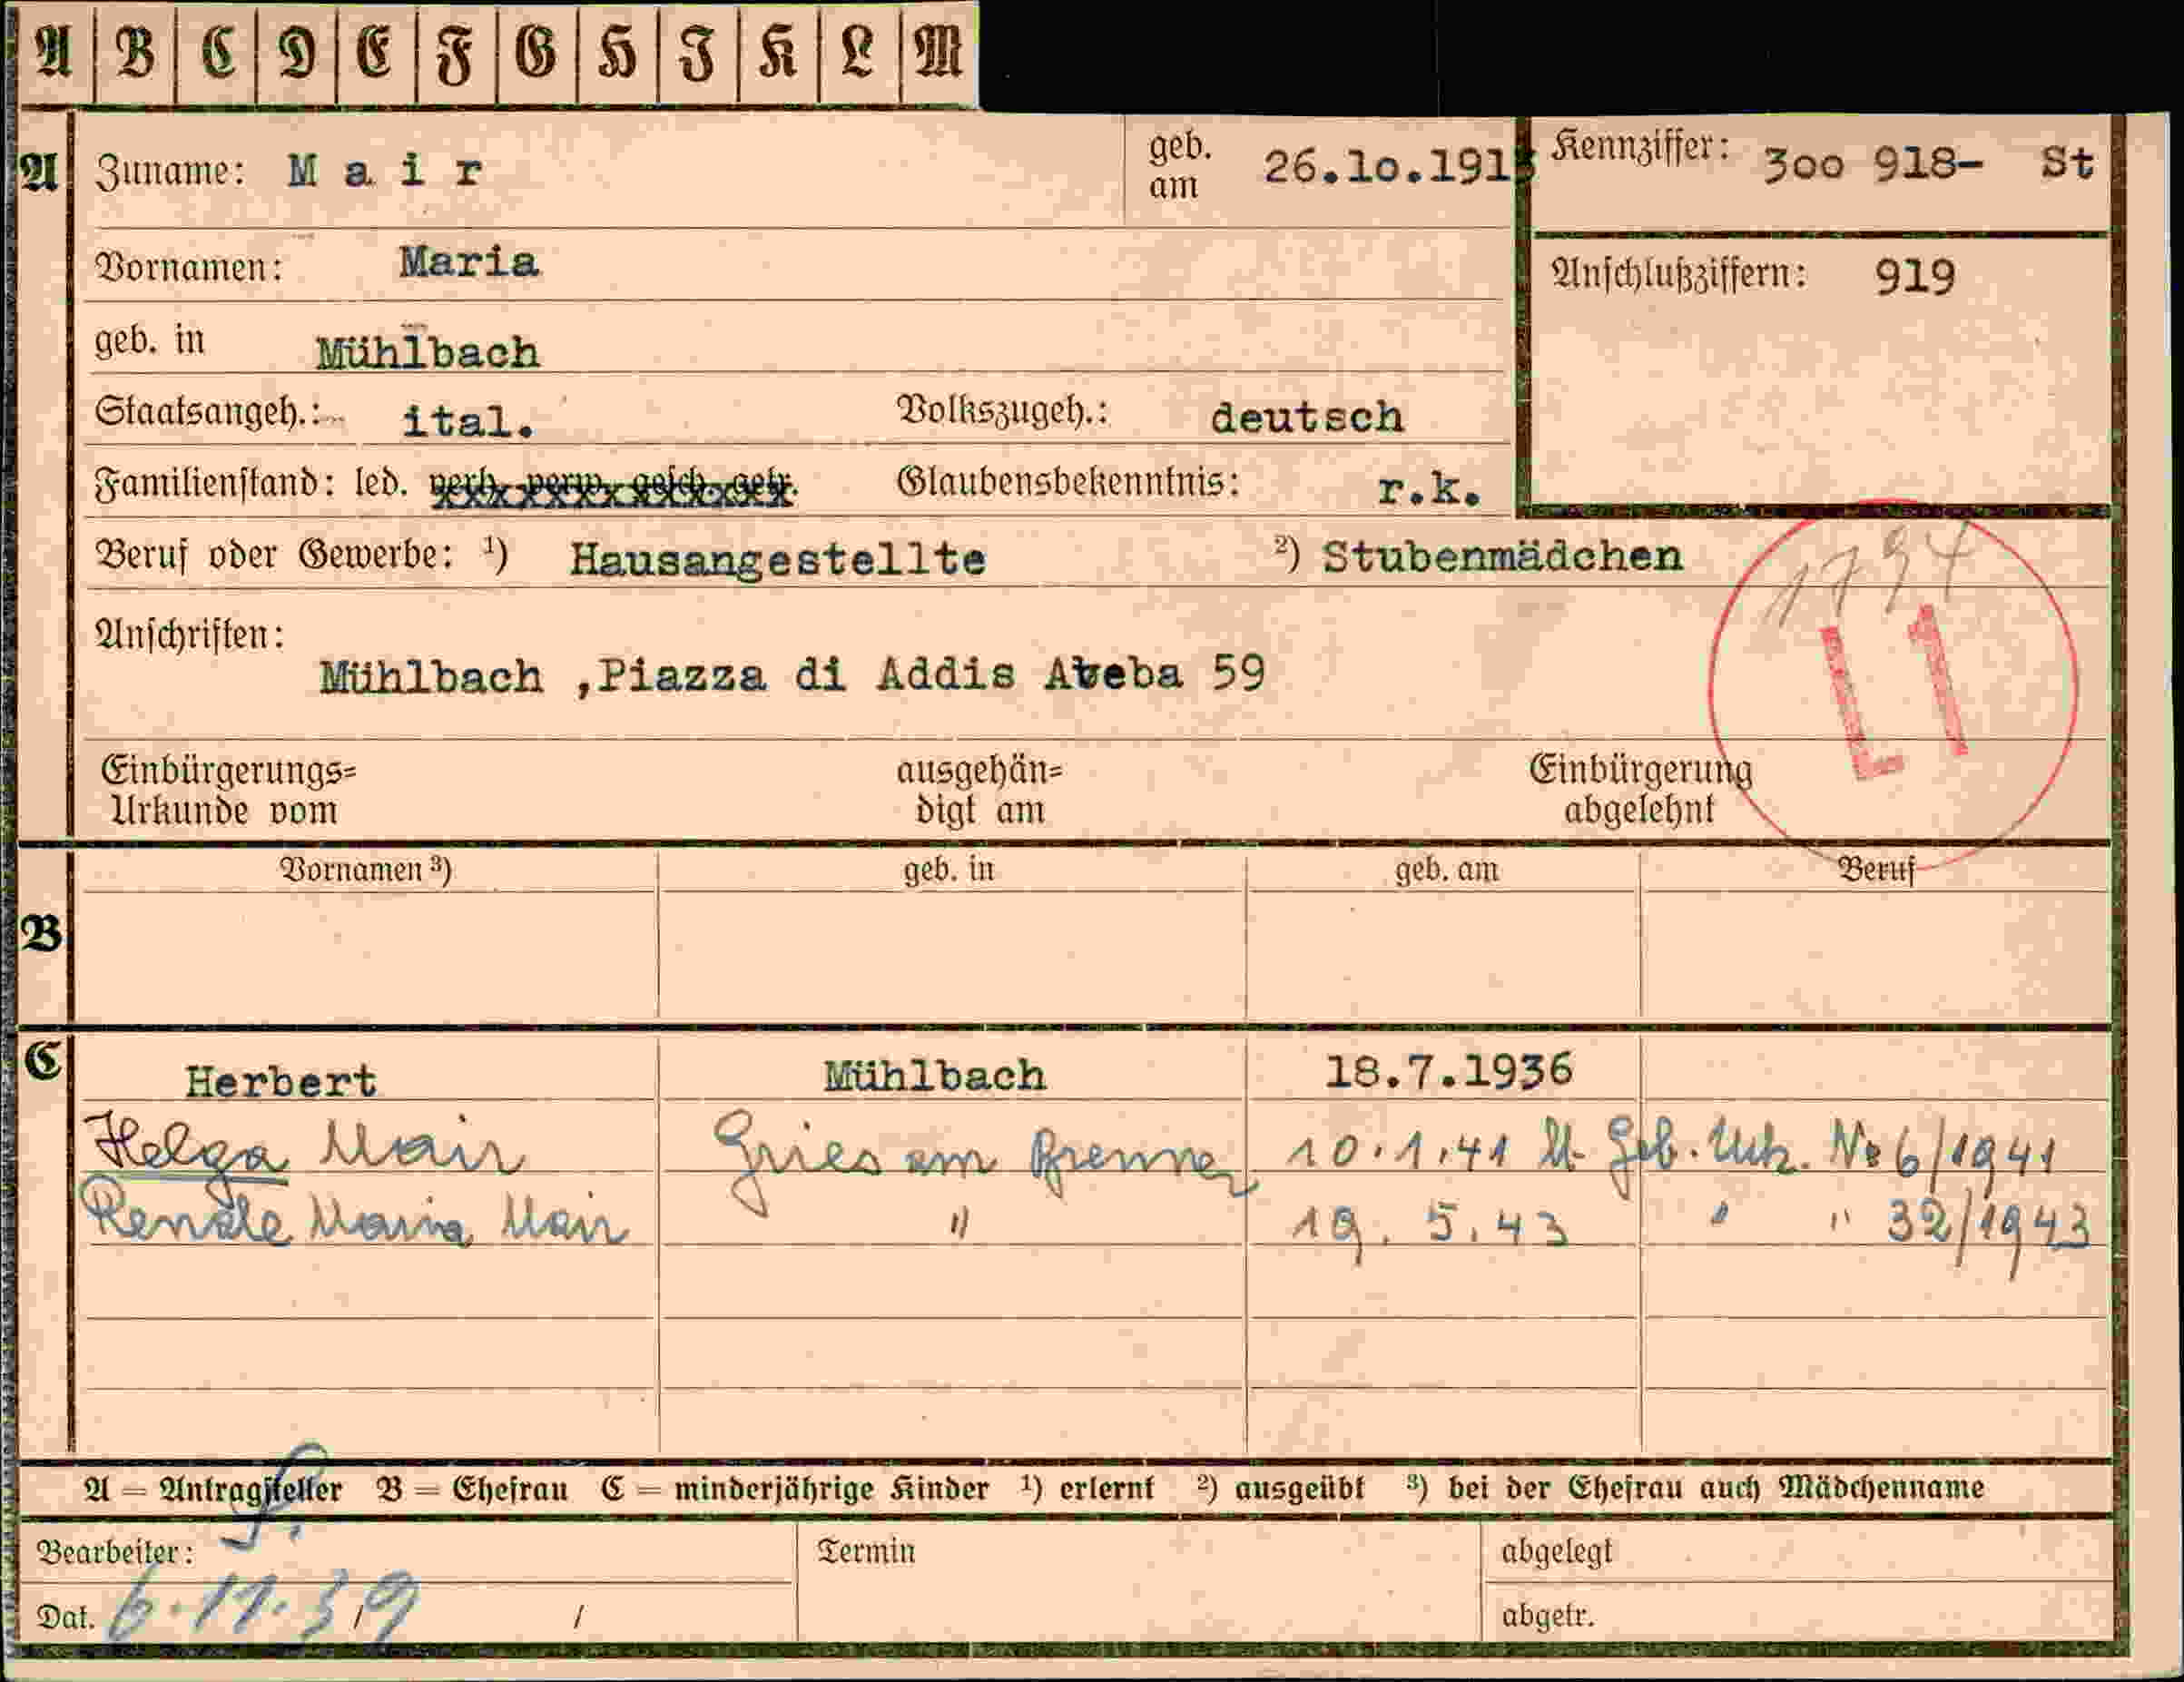 A B C D E F G H I K L M
A Zuname: M a i r geb. am 26.10.191 Kennziffer: 300 918- St
Vornamen: Maria Anschlußziffern: 919
geb. in Mühlbach
Staatsangeh.: ital. Volkszugeh.: deutsch
Familienstand: led. verh. verw. gesch. getr. Glaubensbekenntnis: r.k.
Beruf oder Gewerbe: ¹) Hausangestellte ²) Stubenmädchen
1794
L1
Anschriften:
Mühlbach ,Piazza di Addis Abeba 59
Einbürgerungs= ausgehän= Einbürgerung
Urkunde vom digt am abgelehnt
Vornamen ³) geb. in geb. am Beruf
B
C Herbert Mühlbach 18.7.1936
Helga Mair Gries am Brenner 10.1.41 Geb. Urk. No 6/1941
Renate Maria Mair " 19. 5. 43 " " 32/1943
A = Antragsteller B = Ehefrau C = minderjährige Kinder ¹) erlernt ²) ausgeübt ³) bei der Ehefrau auch Mädchenname
Bearbeiter: Termin abgelegt
Dat. 6.11.39 / / abgetr.